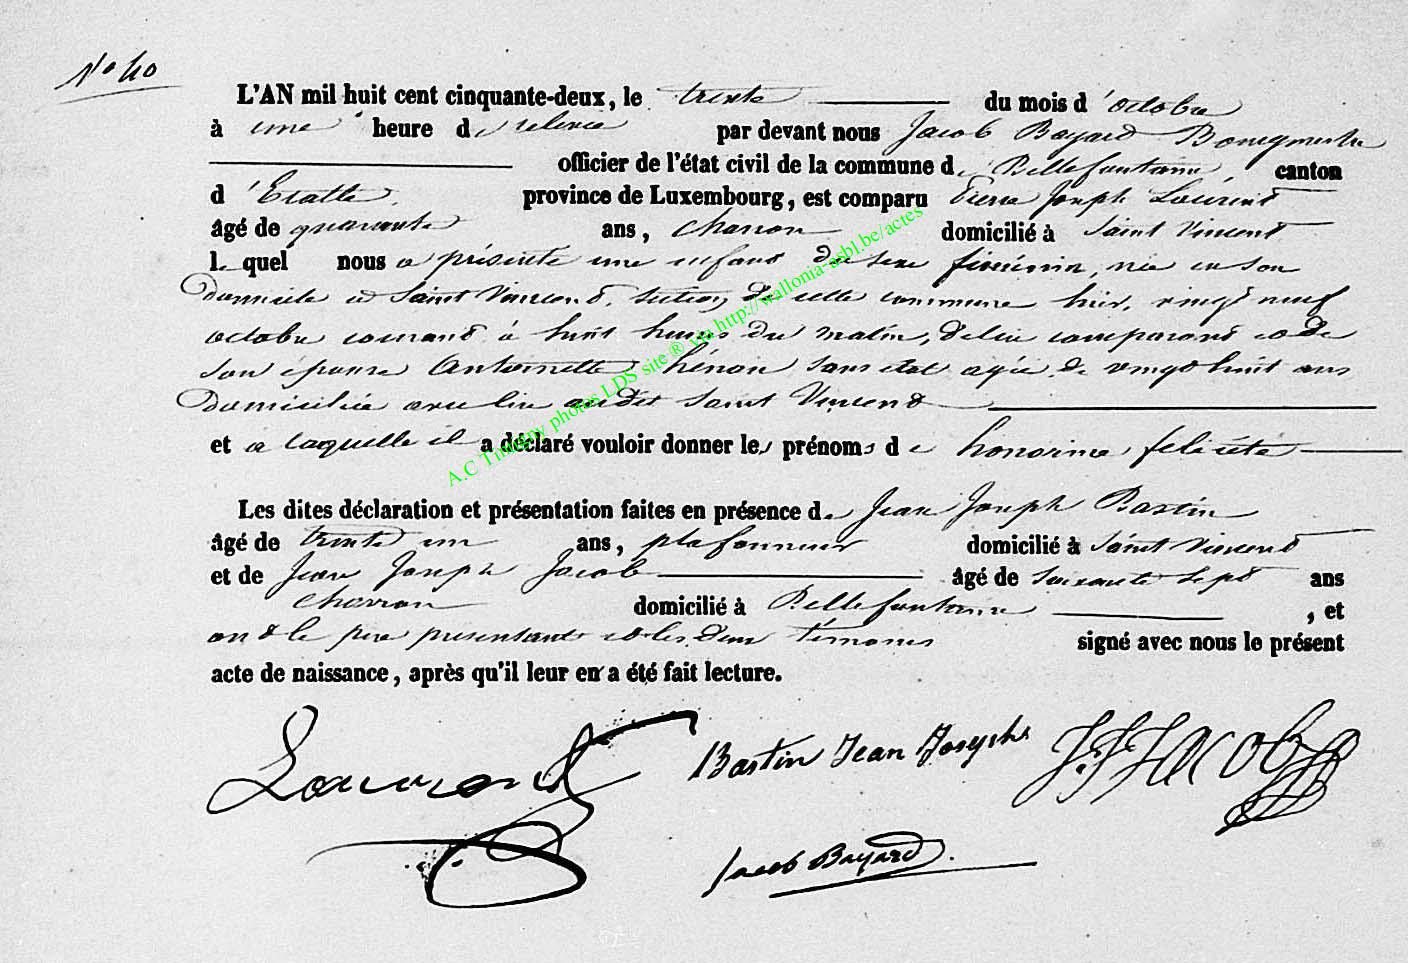 N° 40
L'AN mil huit cent cinquante-deux, le trente du mois d'octobre
à une heure de relevée par devant nous Jacob Bayard Bourgmestre
officier de l'état civil de la commune de Bellefontaine, canton
d'Etalle, province de Luxembourg, est comparu Pierre Joseph Laurent
âgé de quarante ans, charron domicilié à Saint Vincent
lequel nous a présenté une enfant du sexe féminin, née en son
domicile à Saint Vincent, section de cette commune hier, vingt neuf
octobre courant à huit heures du matin, de lui comparant et de
son épouse Antoinette Hénon sans état agée de vingt huit ans
domiciliée avec lui au dit Saint Vincent
et à laquelle il a déclaré vouloir donner les prénoms de honorine felicité
Les dites déclaration et présentation faites en présence de Jean Joseph Bastin
âgé de trente un ans, plafonneur domicilié à Saint Vincent
et de Jean Joseph Jacob âgé de soixante sept ans
charron domicilié à Bellefontaine, et
ont le père présentant et les deux témoins signé avec nous le présent
acte de naissance, après qu'il leur en a été fait lecture.
Laurent
Bastin Jean Joseph
J.J Jacob
Jacob Bayard
A.C Tintigny photos LDS site ® via http://wallonia-asbl.be/actes